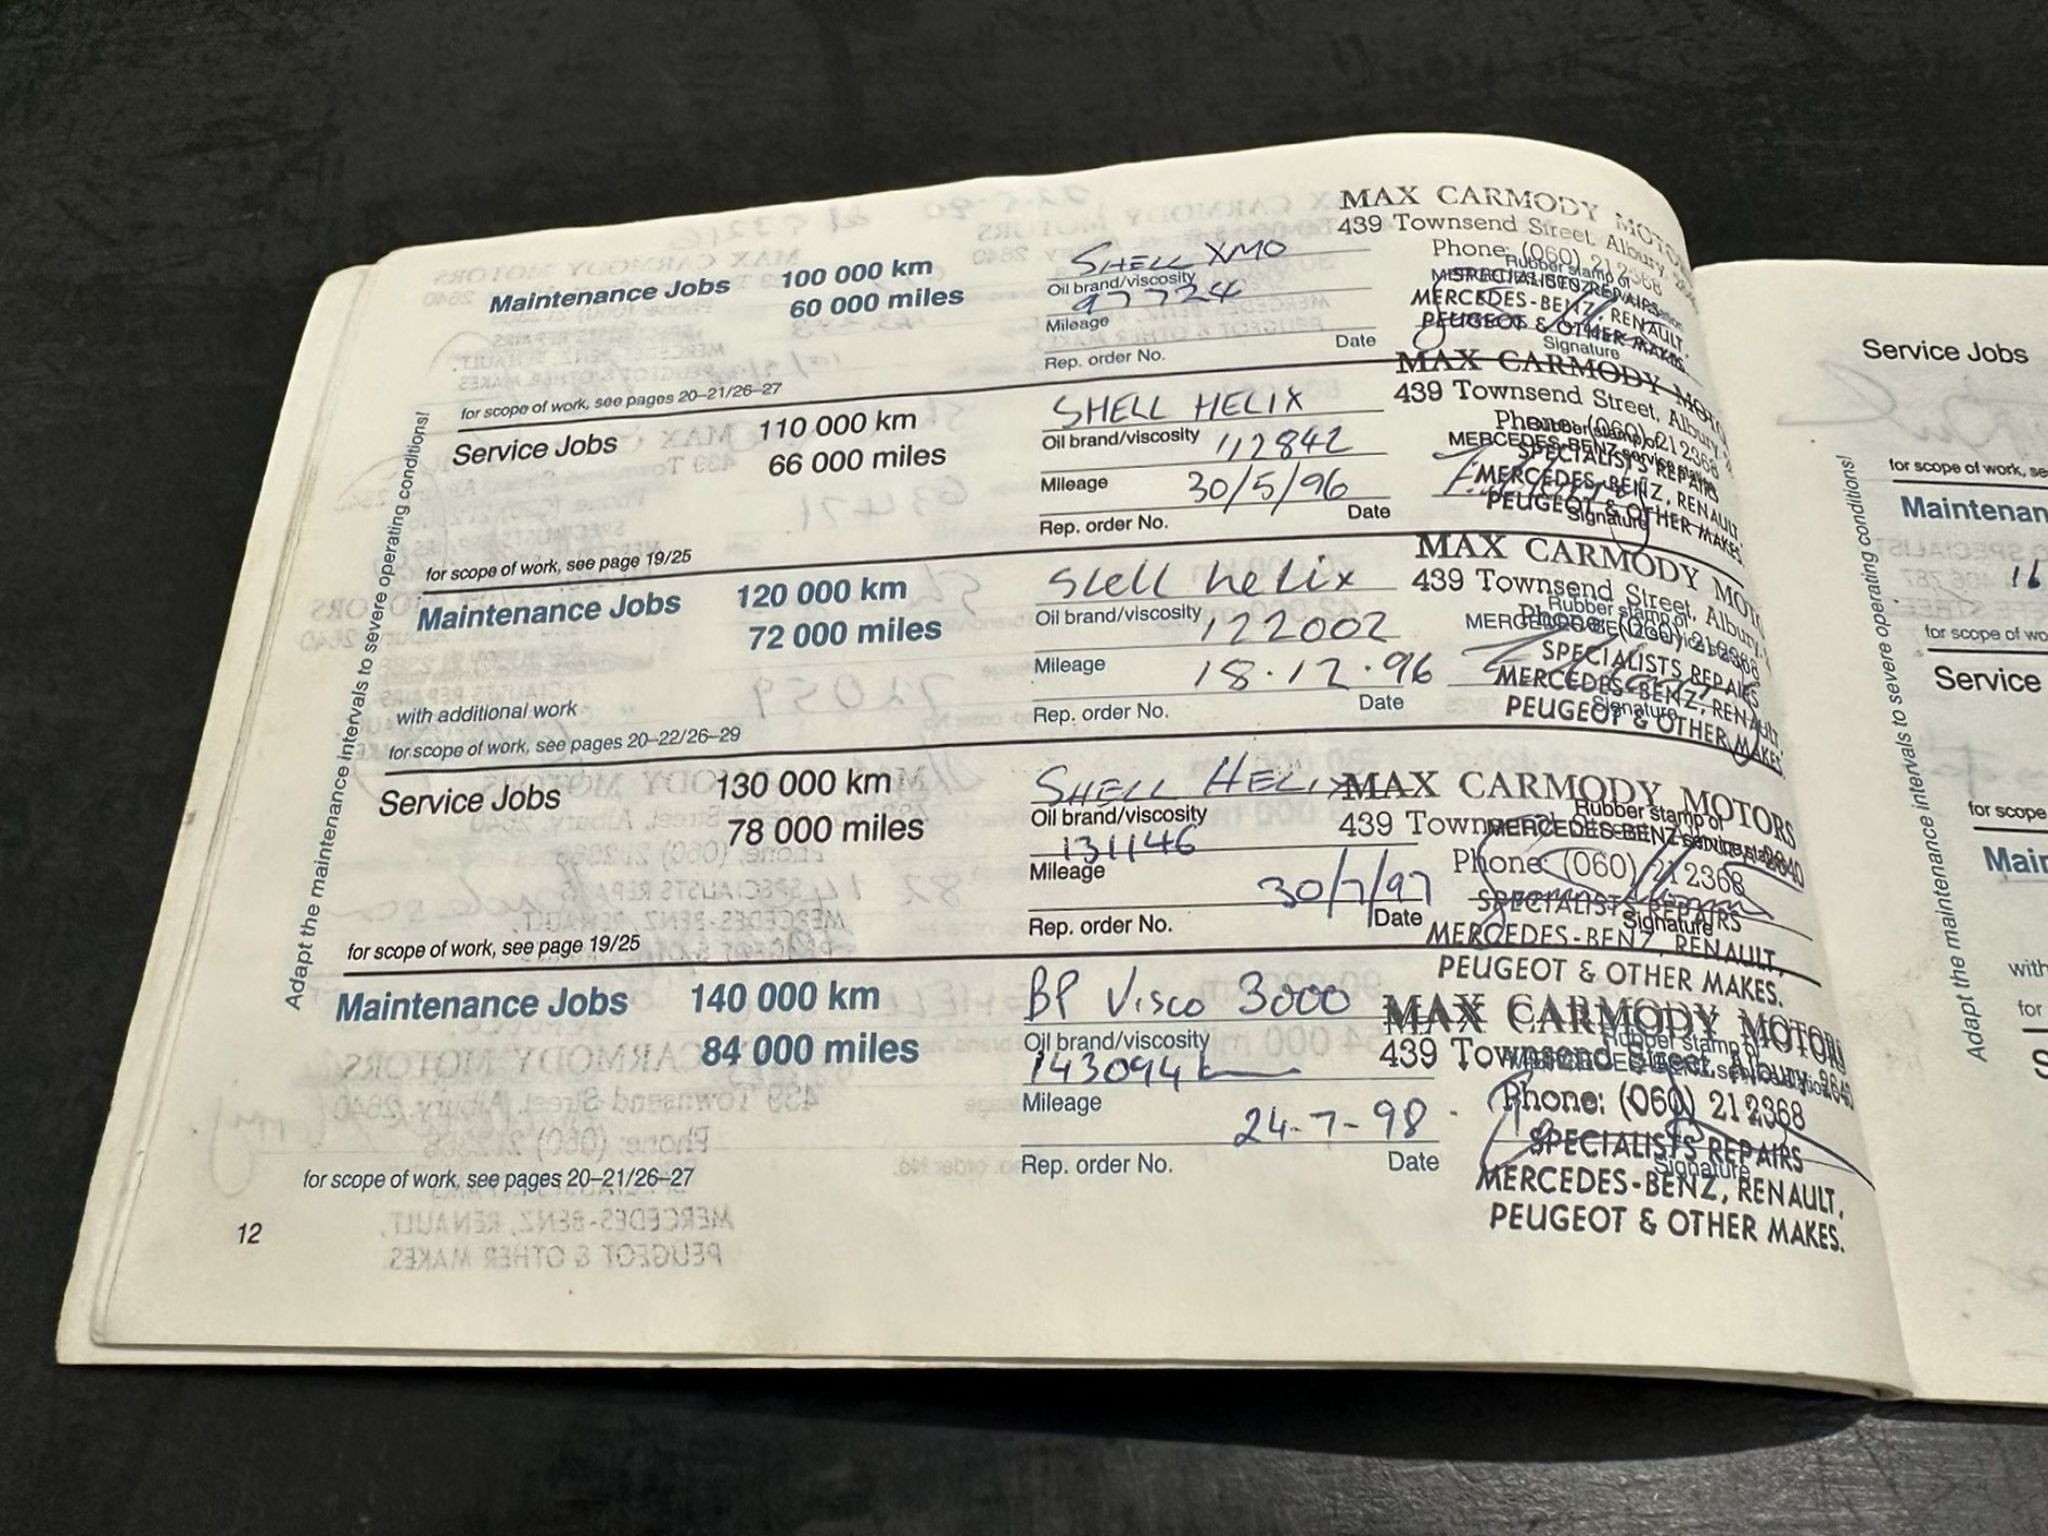 Adapt the maintenance intervals to severe operating conditions!
Maintenance Jobs 100 000 km
60 000 miles
SHELL XMO
Oil brand/viscosity
97724
Mileage
Rep. order No. Date
MAX CARMODY MOTORS
439 Townsend Street, Albury
Phone: (060) 212368
Rubber stamp of
SPECIALISTS REPAIRS
MERCEDES-BENZ, RENAULT,
PEUGEOT & OTHER MAKES.
Signature
for scope of work, see pages 20–21/26–27
Service Jobs 110 000 km
66 000 miles
SHELL HELIX
Oil brand/viscosity
112842
Mileage
30/5/96
Rep. order No. Date
MAX CARMODY MOTO
439 Townsend Street, Albury
Phone: (060) 212368
Rubber stamp of
MERCEDES-BENZ service station
SPECIALISTS REPAIRS
MERCEDES-BENZ, RENAULT
PEUGEOT & OTHER MAKES
Signature
for scope of work, see page 19/25
Maintenance Jobs 120 000 km
72 000 miles
Shell helix
Oil brand/viscosity
122002
Mileage
18.12.96
Rep. order No. Date
MAX CARMODY MOT
439 Townsend Street, Albury,
Phone: (060) 212368
Rubber stamp of
MERCEDES-BENZ service station
SPECIALISTS REPAIRS
MERCEDES-BENZ, RENAULT,
Signature
PEUGEOT & OTHER MAKES.
with additional work
for scope of work, see pages 20–22/26–29
Service Jobs 130 000 km
78 000 miles
SHELL HELIX
Oil brand/viscosity
131146
Mileage
30/7/97
Rep. order No. Date
MAX CARMODY MOTORS
Rubber stamp of
439 Townsend Street, Albury, 2640
MERCEDES-BENZ service station
Phone: (060) 212368
SPECIALISTS REPAIRS
Signature
MERCEDES-BENZ, RENAULT,
PEUGEOT & OTHER MAKES.
for scope of work, see page 19/25
Maintenance Jobs 140 000 km
84 000 miles
BP Visco 3000
Oil brand/viscosity
143094 k
Mileage
24-7-98
Rep. order No. Date
MAX CARMODY MOTORS
Rubber stamp of
439 Townsend Street, Albury, 2640
MERCEDES-BENZ service station
Phone: (060) 212368
SPECIALISTS REPAIRS
Signature
MERCEDES-BENZ, RENAULT,
PEUGEOT & OTHER MAKES.
for scope of work, see pages 20–21/26–27
12
Service Jobs
for scope of work, se
Maintenan
16
for scope of wo
Service
for scope
Main
with
for
S
Adapt the maintenance intervals to severe operating conditions!